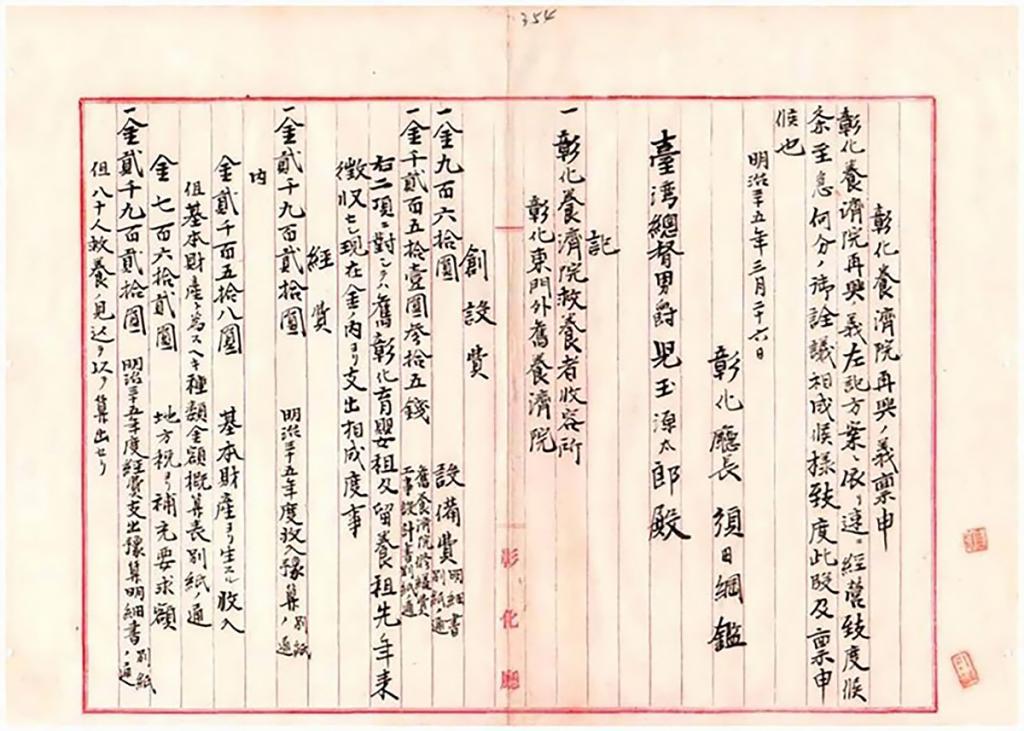 354
彰化養濟院再興ノ義稟申
彰化養濟院再興ノ義左記方案ニ依リ速ニ經營致度候
条至急何分ノ御詮議相成候樣致度此段及稟申
候也
明治三十五年三月二十六日
彰化廳長 須田綱鑑
臺湾總督男爵 児玉源太郎殿
記
一 彰化養濟院救養者收容所
彰化東門外舊養濟院
創設費
一金九百六拾圓 設備費明細書別紙ノ通
一金千貳百五拾壹圓参拾五錢 舊養濟院修繕費工事設計書別紙ノ通
右二項ニ對シテハ舊彰化育嬰租及留養租先年来
徴収セシ現在金ノ内ヨリ支出相成度事
經費
一金貳千九百貳拾圓 明治三十五年度収入豫算別紙ノ通
内
金貳千百五拾八圓 基本財産ヨリ生スル収入
但基本財産ト為スヘキ種類金額概算表別紙ノ通
金七百六拾貳圓 地方税ヨリ補充要求額
一金貳千九百貳拾圓 明治三十五年度經費支出豫算明細書別紙ノ通
但八十人救養ノ見込ヲ以テ算出セリ
彰化廳